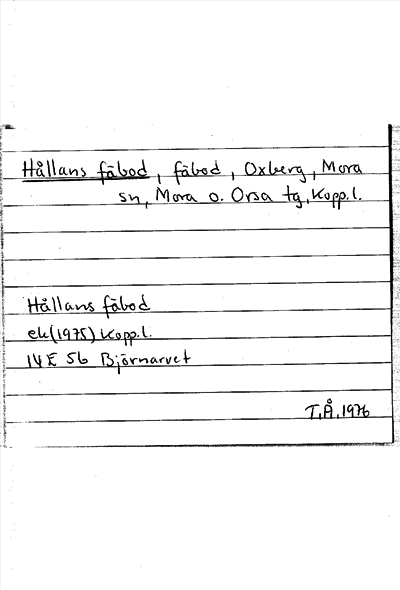 Hållans fäbod, fäbod, Oxberg, Mora
sn, Mora o. Orsa tg, Kopp.l.
Hållans fäbod
ek(1975) Kopp.l.
14E 5b Björnarvet
T.Å. 1976